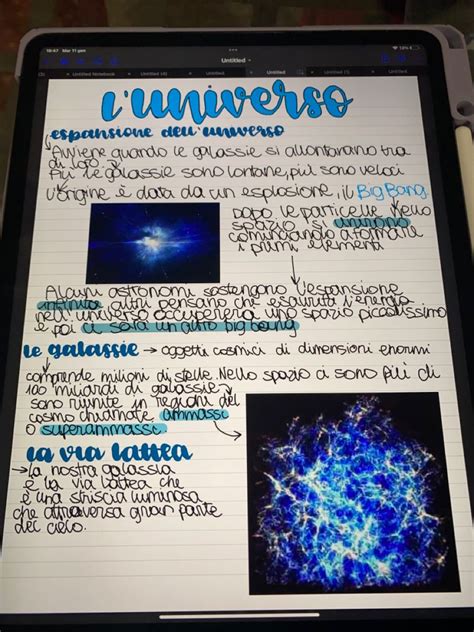 18:47 Mar 11 gen
Untitled
Untitled Notebook Untitled (4) Untitled Untitled Untitled (1) Untitled
L'universo
espansione dell'universo
Avviene quando le galassie si allontanano tra
di loro
Più le galassie sono lontane, più sono veloci
L'origine è data da un esplosione, il Big Bang
Dopo le particelle nello
spazio si unirono
cominciando a formare
i primi elementi
Alcuni astronomi sostengono l'espansione
infinita altri pensano che esaurita l'energia
nell'universo occuperera uno spazio piccolissimo
e poi ci sarà un altro big bang
le galassie → oggetti cosmici di dimensioni enormi
comprende milioni di stelle. Nello spazio ci sono più di
100 miliardi di galassie
sono riunite in regioni del
cosmo chiamate ammassi
o superammassi.
la via lattea
→ la nostra galassia
è la via lattea che
è una striscia luminosa
che attraversa gran parte
del cielo.